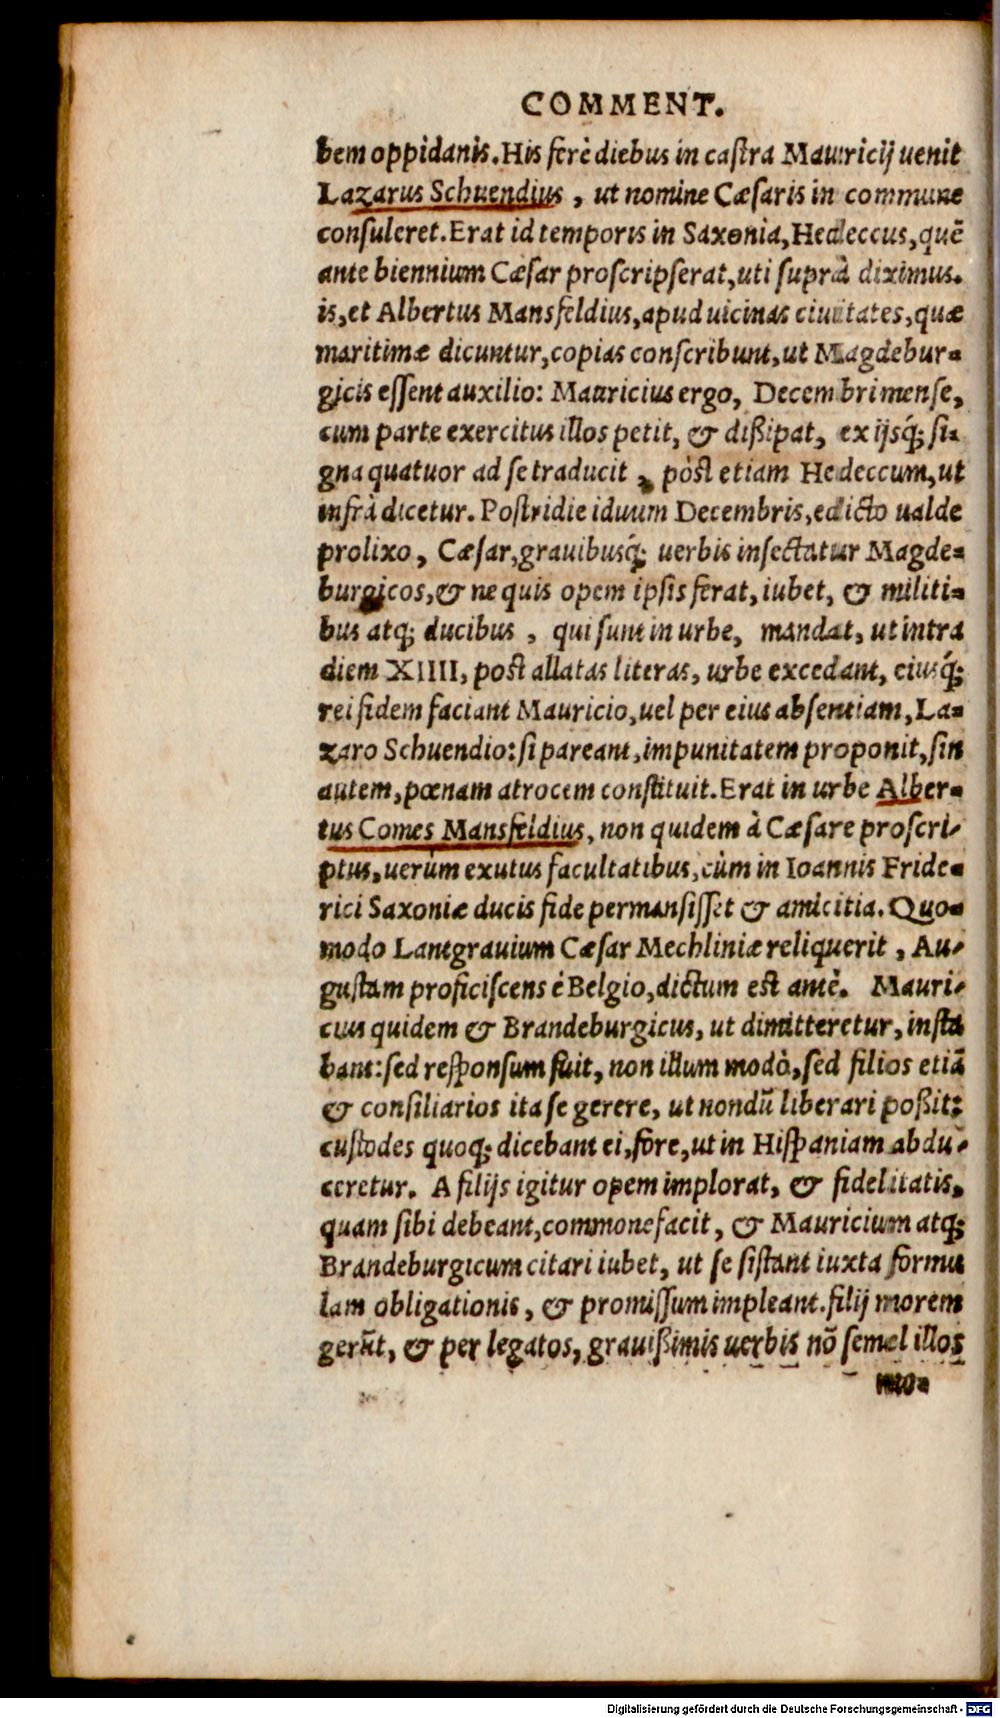 COMMENT.
bem oppidanis. His ferè diebus in castra Mauricij uenit
Lazarus Schuendius, ut nomine Cæsaris in commune
consuleret. Erat id temporis in Saxonia, Hedeccus, quē
ante biennium Cæsar proscripserat, uti suprà diximus.
is, et Albertus Mansfeldius, apud uicinas ciuitates, quæ
maritimæ dicuntur, copias conscribunt, ut Magdebur=
gicis essent auxilio: Mauricius ergo, Decembri mense,
cum parte exercitus illos petit, & dißipat, ex ijsq́; si=
gna quatuor ad se traducit, pòst etiam Hedeccum, ut
infrà dicetur. Postridie iduum Decembris, edicto ualde
prolixo, Cæsar, grauibusq́; uerbis insectatur Magde=
burgicos, & ne quis opem ipsis ferat, iubet, & militi=
bus atq; ducibus, qui sunt in urbe, mandat, ut intra
diem XIIII, post allatas literas, urbe excedant, eiusq́;
rei fidem faciant Mauricio, uel per eius absentiam, La=
zaro Schuendio: si pareant, impunitatem proponit, sin
autem, pœnam atrocem constituit. Erat in urbe Alber=
tus Comes Mansfeldius, non quidem à Cæsare proscri=
ptus, uerùm exutus facultatibus, cùm in Ioannis Fride=
rici Saxoniæ ducis fide permansisset & amicitia. Quo=
modo Lantgrauium Cæsar Mechliniæ reliquerit, Au=
gustam proficiscens è Belgio, dictum est antè. Mauri=
cius quidem & Brandeburgicus, ut dimitteretur, insta
bant: sed responsum fuit, non illum modò, sed filios etiā
& consiliarios ita se gerere, ut nondū liberari poßit:
custodes quoq; dicebant ei, fore, ut in Hispaniam abdu=
ceretur. A filijs igitur opem implorat, & fidelitatis,
quam sibi debeant, commonefacit, & Mauricium atq;
Brandeburgicum citari iubet, ut se sistant iuxta formu
lam obligationis, & promissum impleant. filij morem
gerūt, & per legatos, grauißimis uerbis nō semel illos
mo=
Digitalisierung gefördert durch die Deutsche Forschungsgemeinschaft - DFG